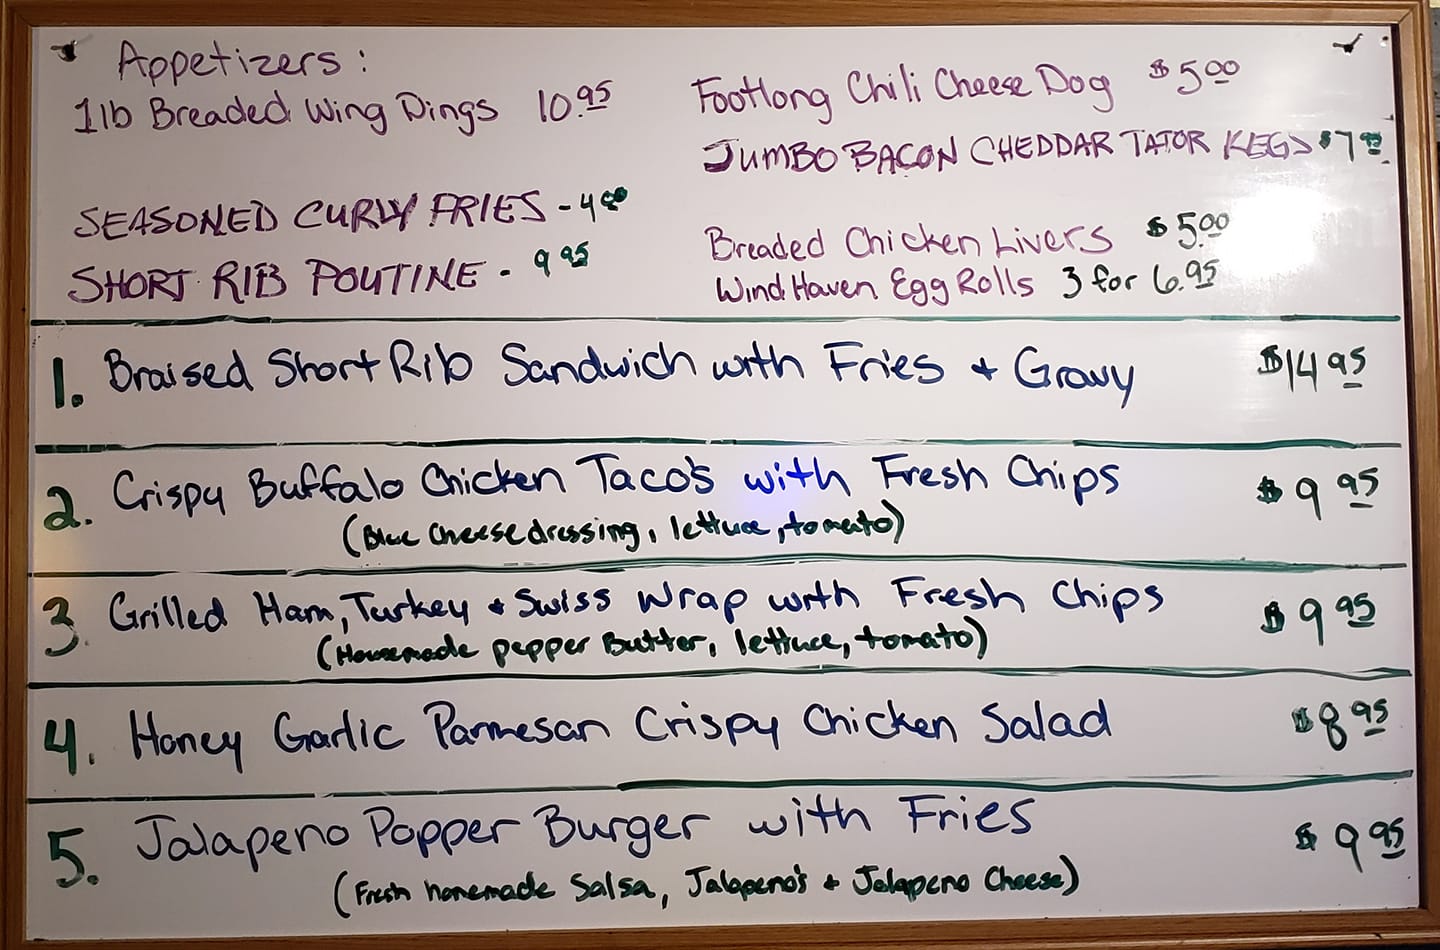 Appetizers:
1lb Breaded Wing Dings 10.95
SEASONED CURLY FRIES - 4.00
SHORT RIB POUTINE - 9 95
Footlong Chili Cheese Dog $5.00
JUMBO BACON CHEDDAR TATOR KEGS $7
Breaded Chicken Livers $5.00
Wind Haven Egg Rolls 3 for 6.95
1. Braised Short Rib Sandwich with Fries + Gravy $14 95
2. Crispy Buffalo Chicken Taco's with Fresh Chips $9 95
(Blue Cheese dressing, lettuce, tomato)
3. Grilled Ham, Turkey + Swiss Wrap with Fresh Chips $9 95
(Homemade pepper Butter, lettuce, tomato)
4. Honey Garlic Parmesan Crispy Chicken Salad $8 95
5. Jalapeno Popper Burger with Fries $9 95
(Fresh homemade Salsa, Jalapeno's + Jalapeno Cheese)